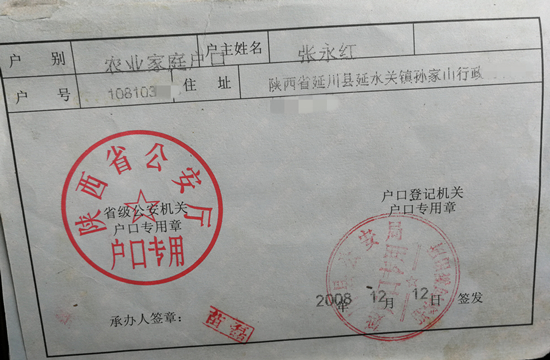 户 别 农业家庭户口 户主姓名 张永红
户 号 108103 住 址 陕西省延川县延水关镇孙家山行政
陕西省公安厅
户口专用
省级公安机关
户口专用章
户口登记机关
户口专用章
公安局
户口专用
2008年 12月 12日 签发
承办人签章：